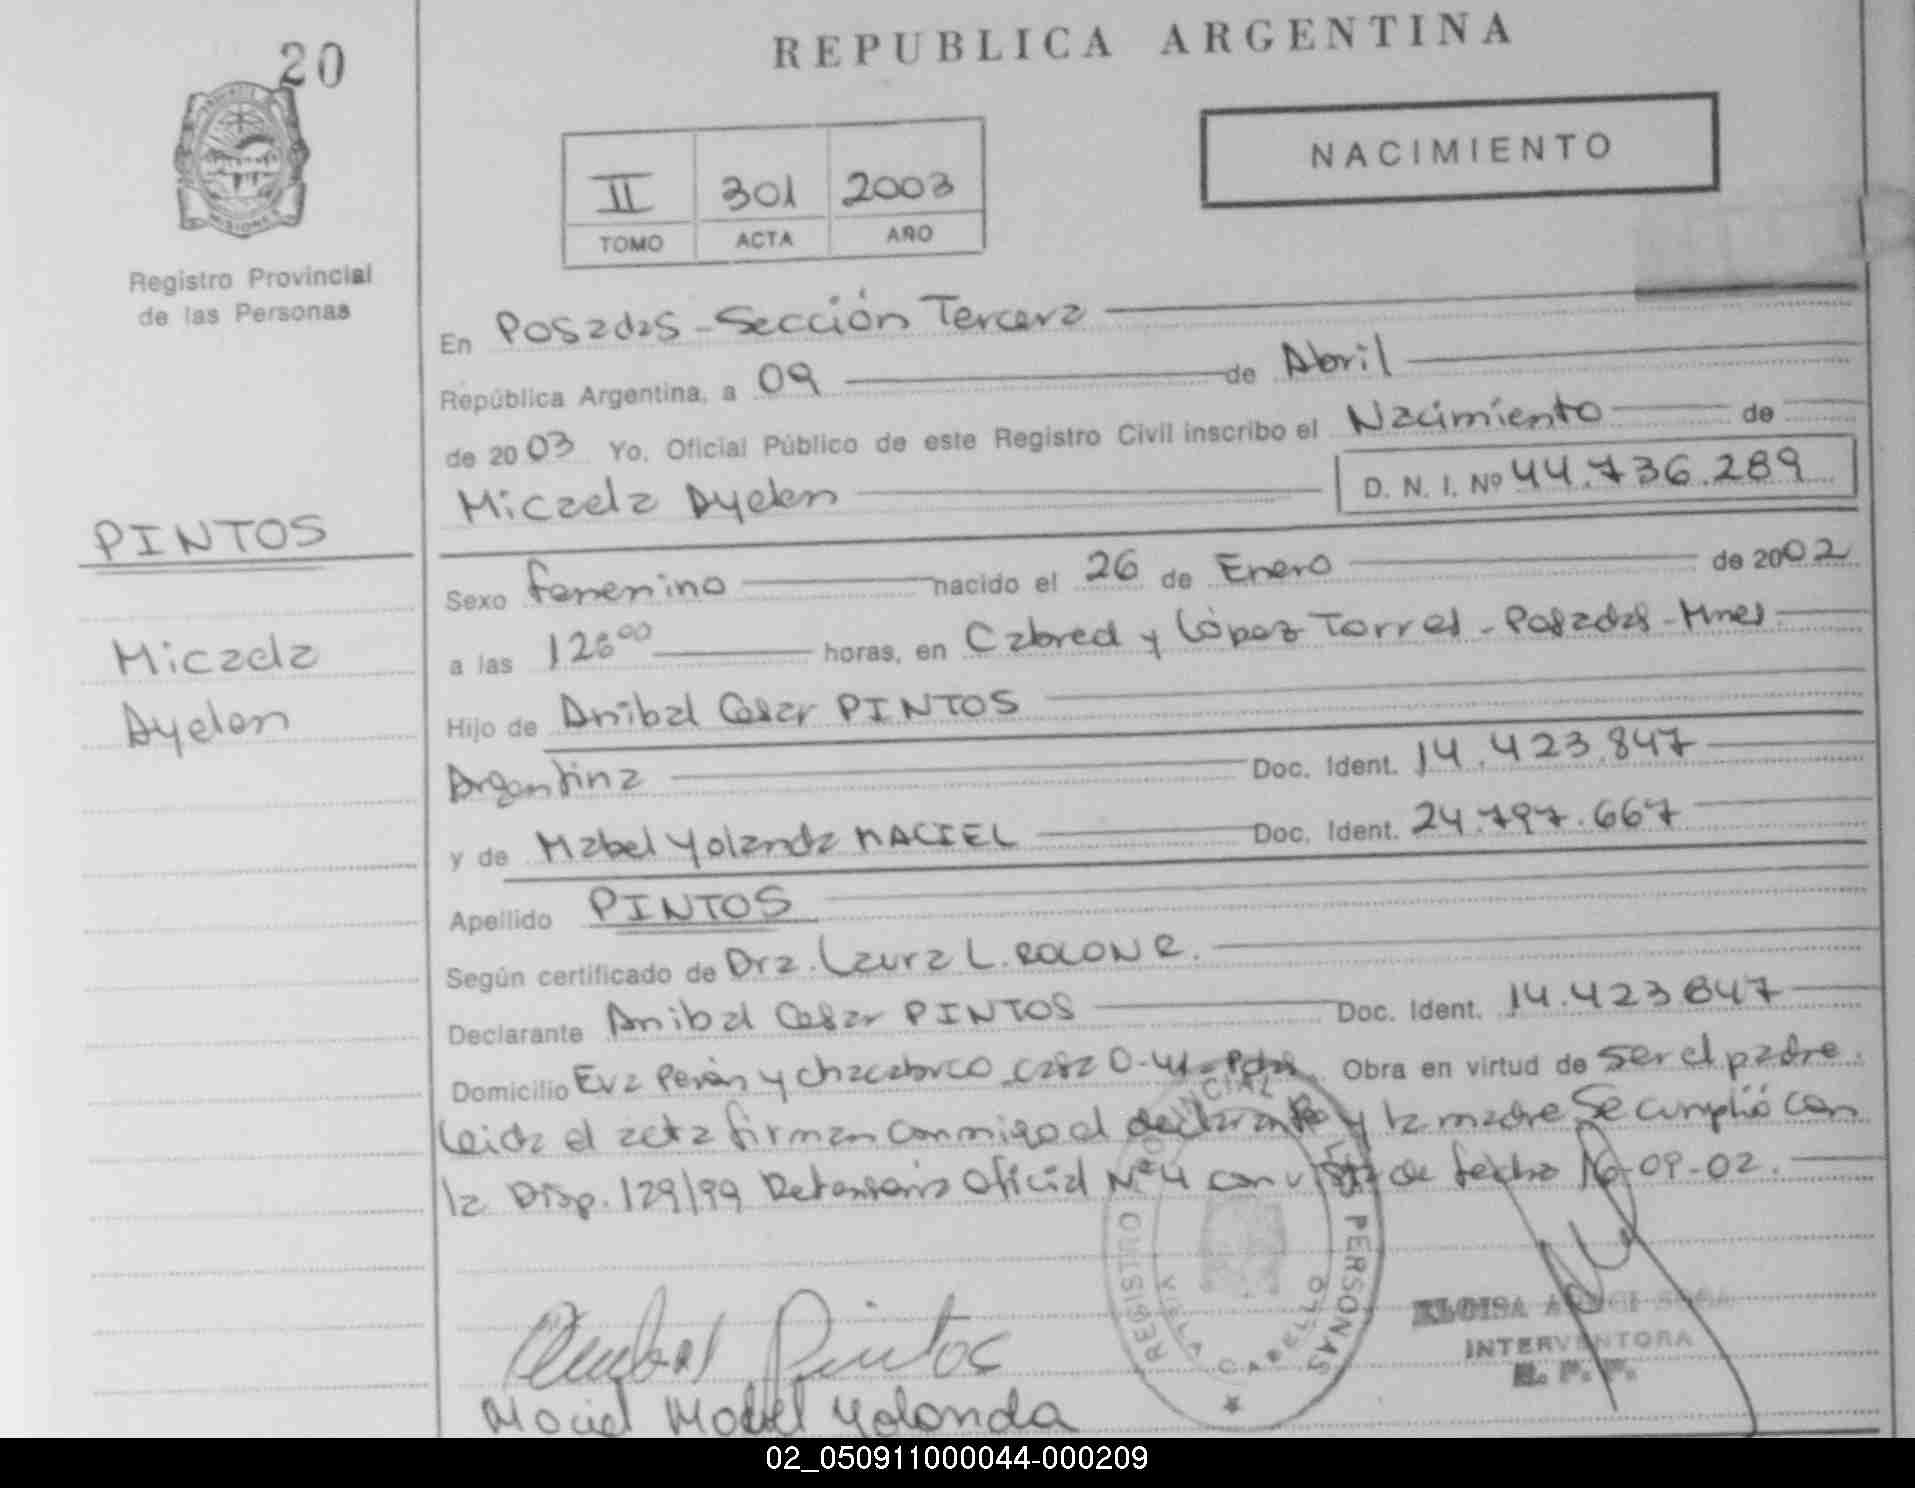 20
REPUBLICA ARGENTINA
NACIMIENTO
II 301 2003
TOMO ACTA AÑO
MISIONES
Registro Provincial
de las Personas
En Posadas - Sección Tercera
República Argentina, a 09 de Abril
de 2003 Yo, Oficial Público de este Registro Civil inscribo el Nacimiento de
Micaela Ayelen D. N. I. Nº 44.736.289
PINTOS
Micaela
Ayelen
Sexo femenino nacido el 26 de Enero de 2002
a las horas, en Cabred y López Torres - Posadas - Mnes
Hijo de Anibal Cesar PINTOS
Argentina Doc. Ident. 14.423.847
y de Mabel Yolanda MACIEL Doc. Ident. 24.797.667
Apellido PINTOS
Según certificado de Dra. Laura L. ROLON R.
Declarante Anibal Cesar PINTOS Doc. Ident. 14.423.847
Domicilio Eva Perón y Chacabuco casa 0-41 - Pdas Obra en virtud de ser el padre.
Leida el acta firman conmigo el declarante y la madre Se cumplió con
la Disp. 129/99 Defensoria Oficial Nº 4 con vista de fecha 16-09-02.
REGISTRO PROVINCIAL DE LAS PERSONAS
VILLA CABELLO
Anibal Pintos
Maciel Mabel Yolanda
ELOISA
INTERVENTORA
R. P. P.
02_050911000044-000209